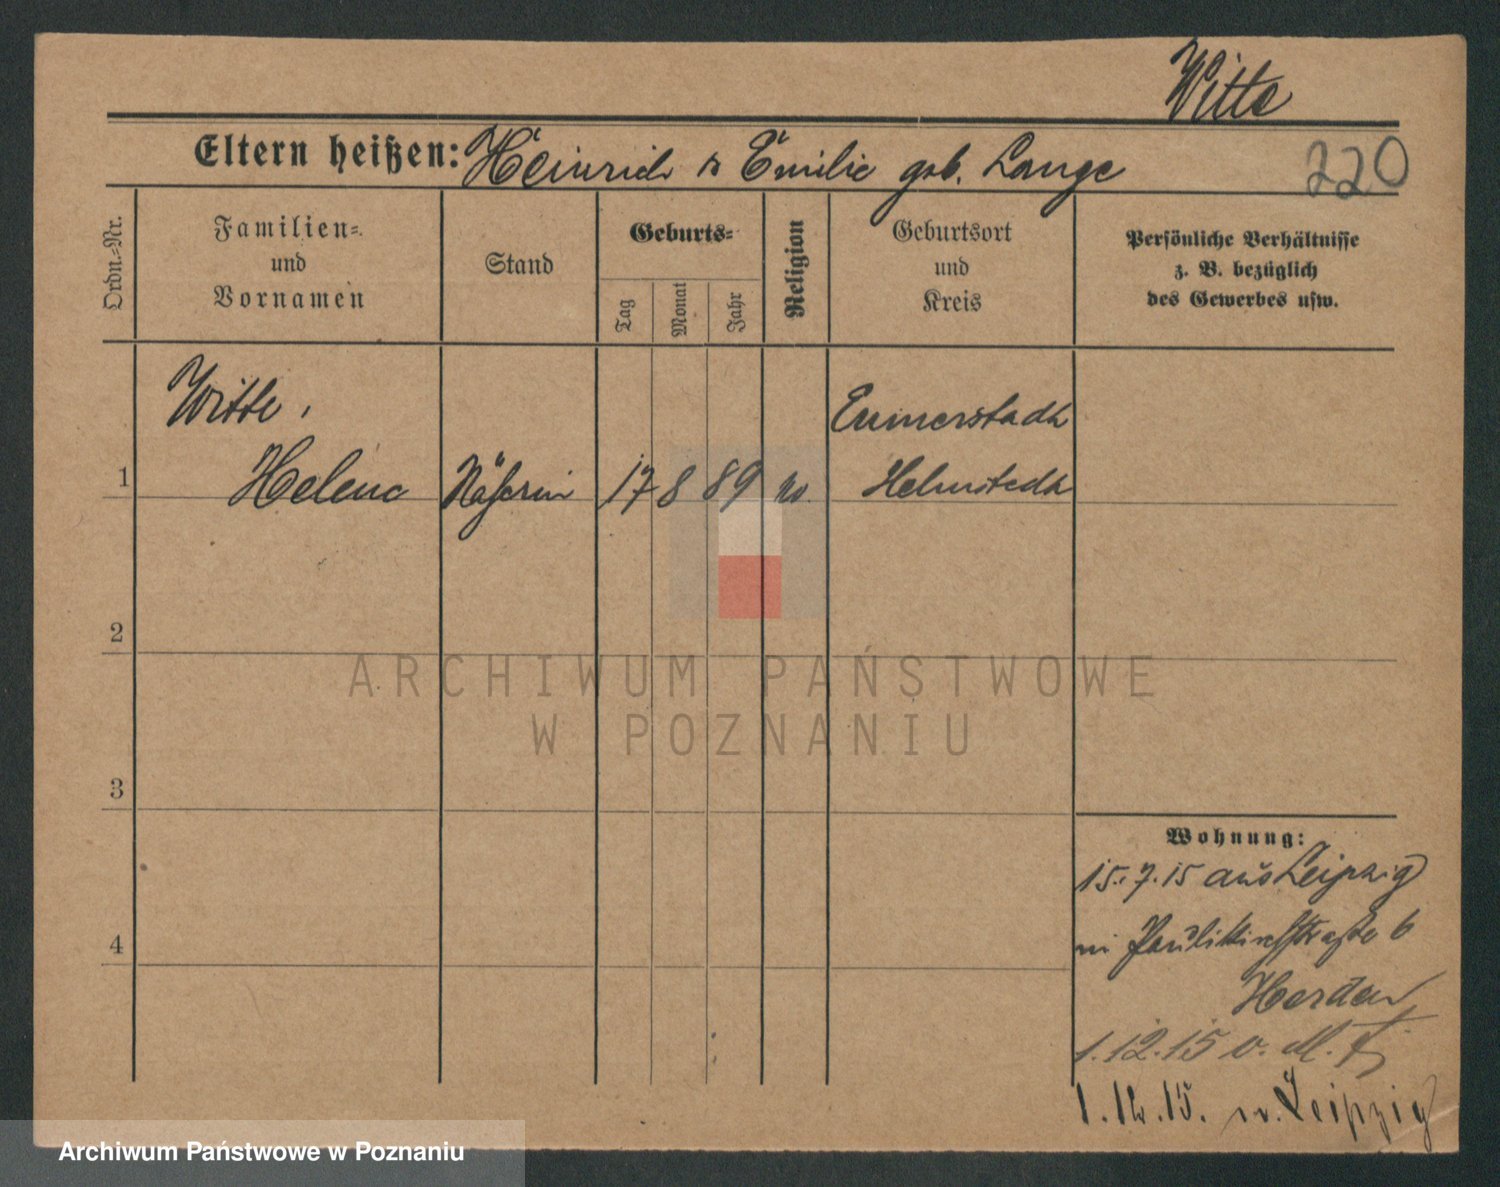 Witte
Eltern heißen: Heinrich u Emilie geb. Lange
220
Ordn.-Nr.
Familien-
und
Vornamen
Stand
Geburts-
Tag
Monat
Jahr
Religion
Geburtsort
und
Kreis
Persönliche Verhältnisse
z. B. bezüglich
des Gewerbes usw.
Witte,
Emmerstedt
1 Helene Näherin 17 8 89 Helmstedt
2
3
4
Wohnung:
15.7.15 aus Leipzig
Paulikirchstraße 6
1.12.15 v.
1.12.15. n. Leipzig
ARCHIWUM PAŃSTWOWE
W POZNANIU
Archiwum Państwowe w Poznaniu